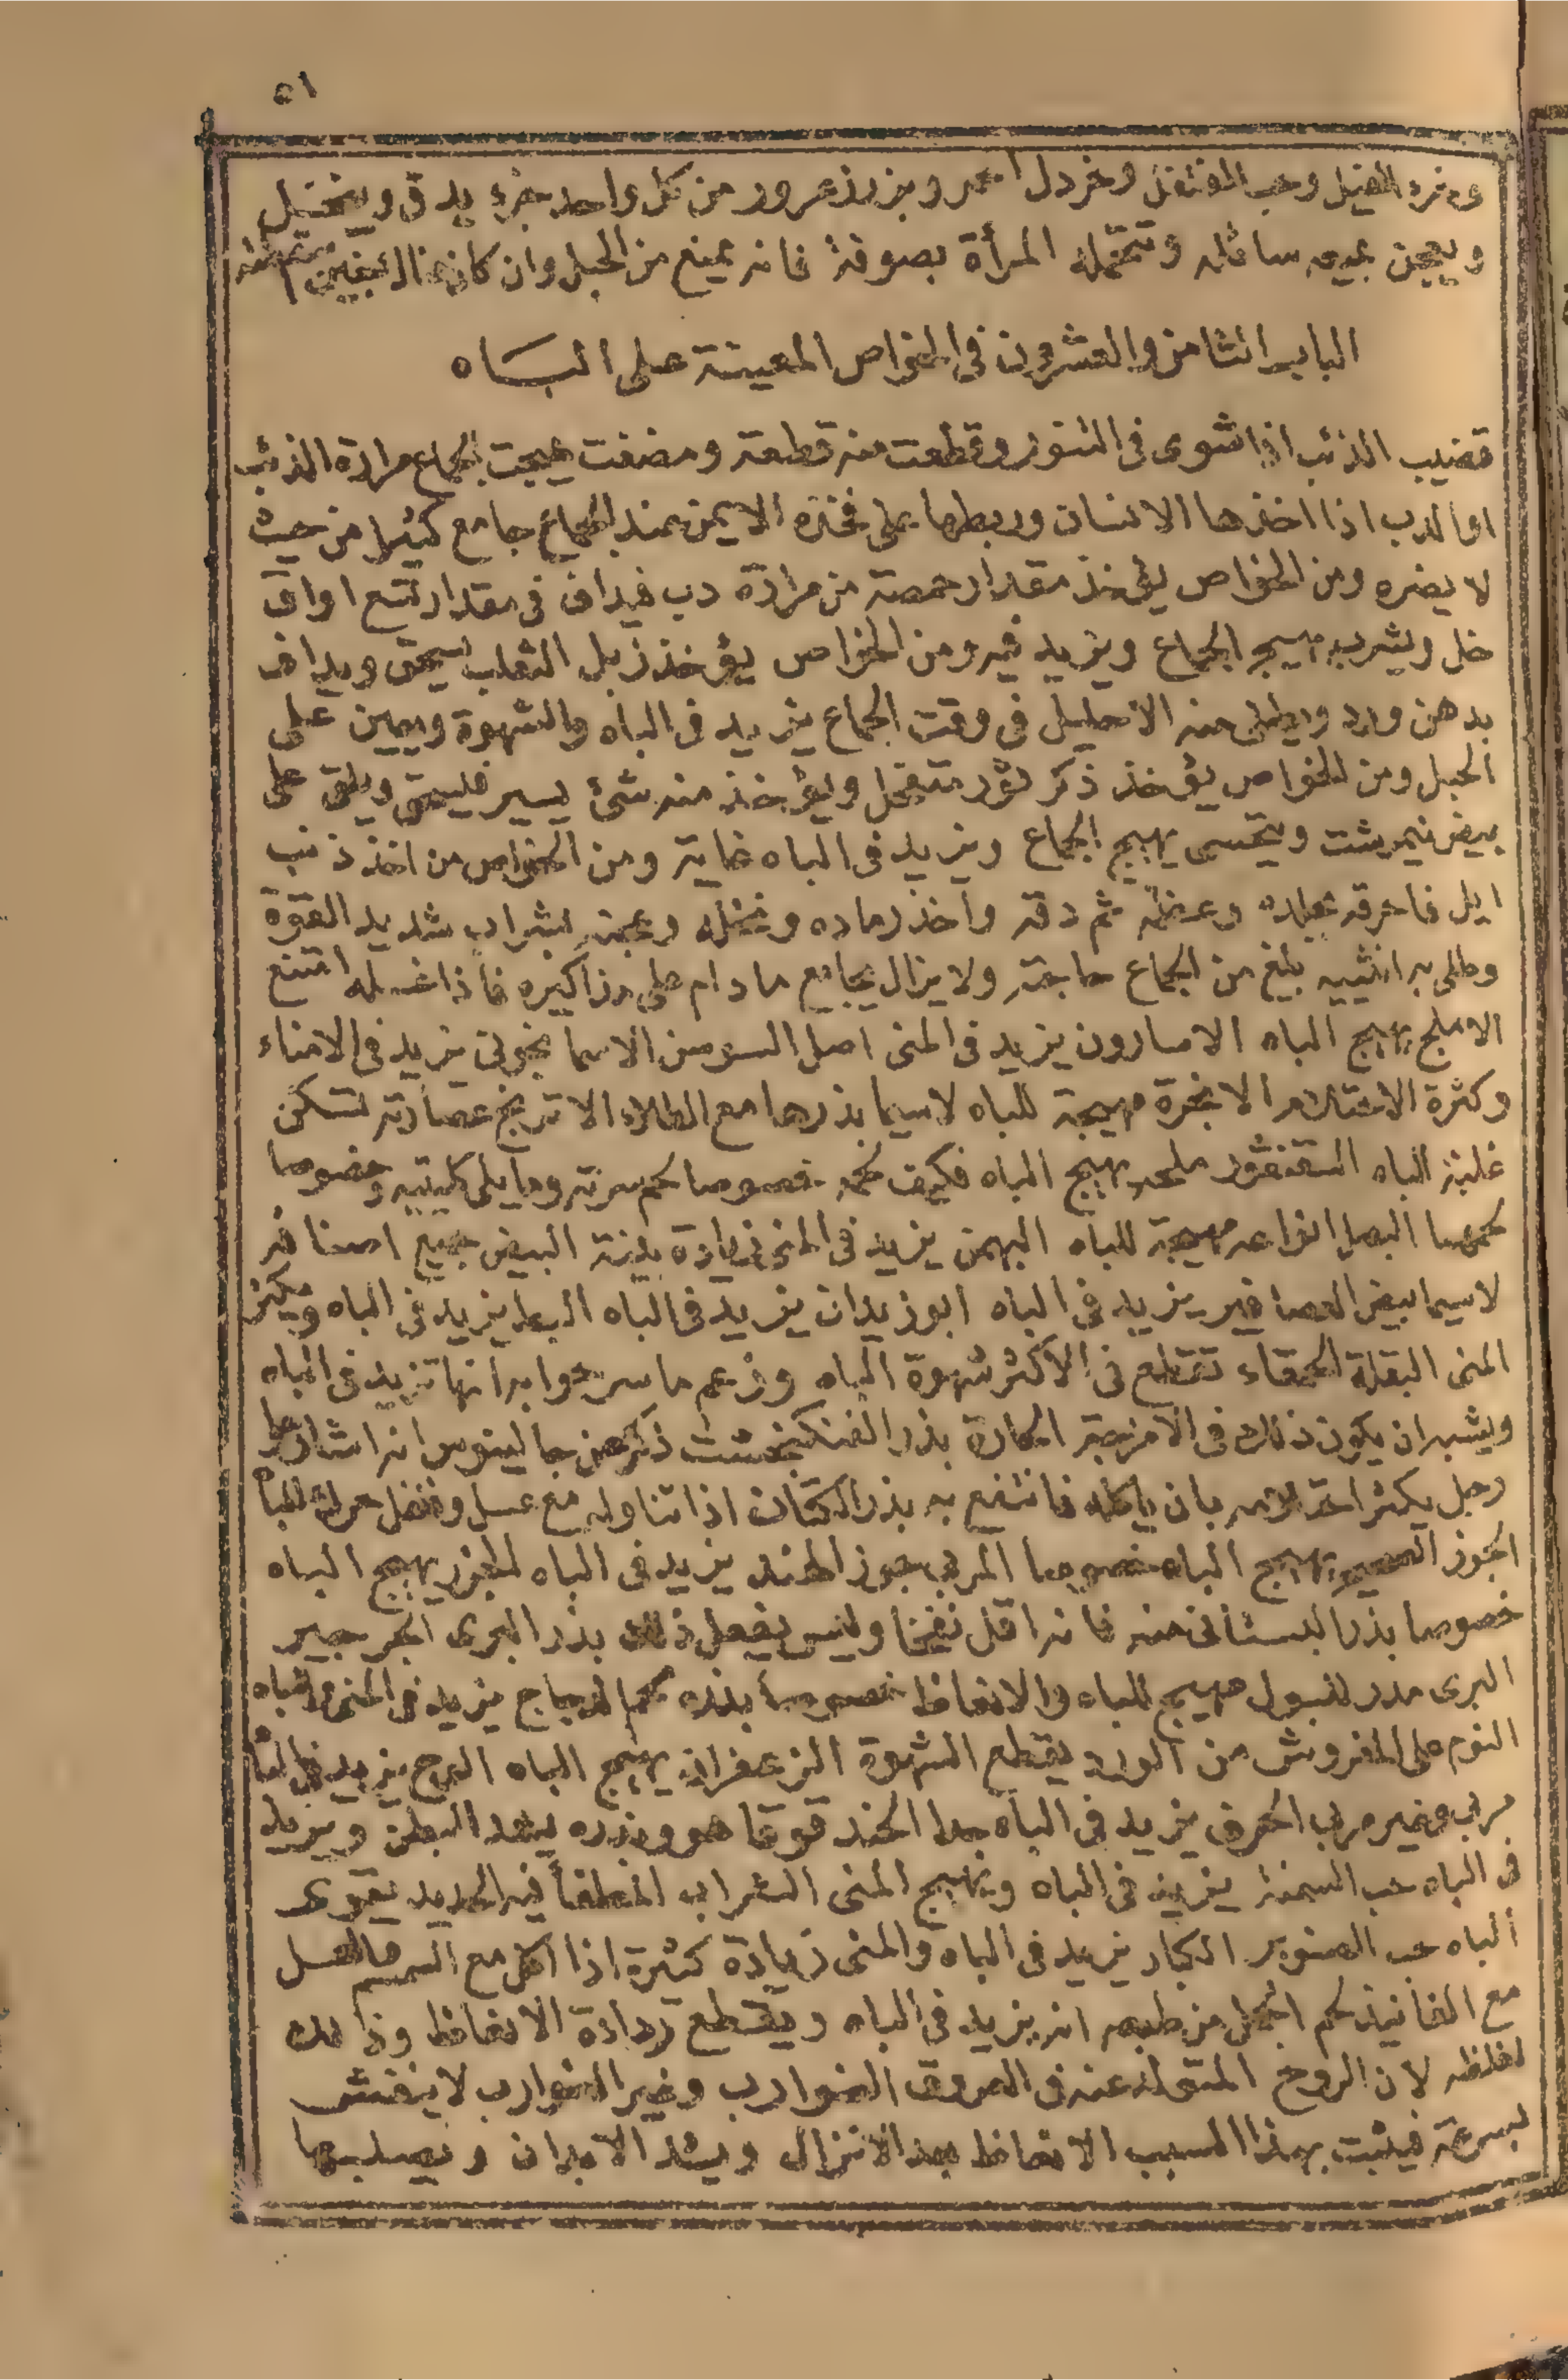 ٥١
وخرء الفيل وحب الفلفل وخردل احمر وبزر زعرور من كل واحد جزء يدق وينخل
ويعجن بميعه سائله وتتحمله المرأة بصوفة فانه يمنع من الحبل وان كان هناك جنين
الباب الثامن والعشرون في الخواص المعينة على الباه
قضيب الذئب اذا شوى فى التنور وقطعت منه قطعة ومضغت هيجت الجماع مرارة الذئب
او الدب اذا اخذها الانسان وربطها على فخذه الايمن عند الجماع جامع كثيرا من حيث
لا يضره ومن الخواص يؤخذ مقدار حمصة من مرارة دب فيداف فى مقدار تسع اواق
خل ويشرب يهيج الجماع ويزيد فيه ومن الخواص يؤخذ زبل الثعلب يسحق ويداف
بدهن ورد ويطلى منه الاحليل فى وقت الجماع يزيد فى الباه والشهوة ويعين على
الحبل ومن الخواص يؤخذ ذكر ثور متفحل ويؤخذ منه شئ يسير فيسحق ويلقى على
بيض نيمرشت ويتحسى يهيج الجماع ويزيد فى الباه غاية ومن الخواص من اخذ ذنب
ايل فاحرقه بجلده وعظمه ثم دقه واخذ رماده ونخله وعجنه بشراب شديد القوة
وطلى به انثييه بلغ من الجماع حاجته ولا يزال يجامع ما دام على مذاكيره فاذا غسله امتنع
الاملج يهيج الباه الاسارون يزيد فى المنى اصل السوسن الاسمانجونى يزيد فى الامناء
وكثرة الاحتلام الانجرة مهيجة للباه لاسيما بذرها مع الطلاء الاترنج عصارته تسكن
غلبة الباه السقنقور ملحه يهيج الباه فكيف لحمه خصوصا لحم سرته وما يلى كليتيه وخصوصا
لحمها البصل انواعه مهيجة للباه البهمن يزيد فى المنى زيادة بينة البيض جميع اصنافه
لاسيما بيض العصافير يزيد فى الباه ابوزيدان يزيد فى الباه البط يزيد فى الباه ويكثر
المنى البقلة الحمقاء تقطع فى الاكثر شهوة الباه وزعم ماسرجوابه انها تزيد فى الباه
ويشبه ان يكون ذلك فى الامزجة الحارة بذر الفنكجشت ذكر عن جالينوس انه اشار على
رجل يكثر احتلامه بان ياكله فانتفع به بذر الكتان اذا تناوله مع عسل وفلفل حرك للباه
الجوز يهيج الباه خصوصا المربى جوز الهند يزيد فى الباه الجزر يهيج الباه
خصوصا بذر البستانى منه فانه اقل نفخا وليس يفعل ذلك بذر البرى الجرجير
البرى مدر للبول مهيج للباه والانعاظ خصوصا بذره لحم الدجاج يزيد فى المنى والباه
النوم على المفروش من الورد يقطع الشهوة الزعفران يهيج الباه
مربى وغير مربى الحرف يزيد فى الباه جدا الحندقوقا هو وبذره يشد البطن ويزيد
فى الباه حب السمنة يزيد فى الباه ويهيج المنى الشراب المطفأ فيه الحديد يقوى
الباه حب الصنوبر الكبار يزيد فى الباه والمنى زيادة كثيرة اذا اكل مع السمسم والعسل
مع الفانيذ لحم الجمل من طبعه انه يزيد فى الباه ويقطع رداءة الانعاظ وذلك
لغلظه لان الروح المتولد عنه فى العروق الضوارب وغير الضوارب لا ينفش
بسرعة فيثبت بهذا السبب الانعاظ بعد الانزال ويشد الابدان ويصلبها